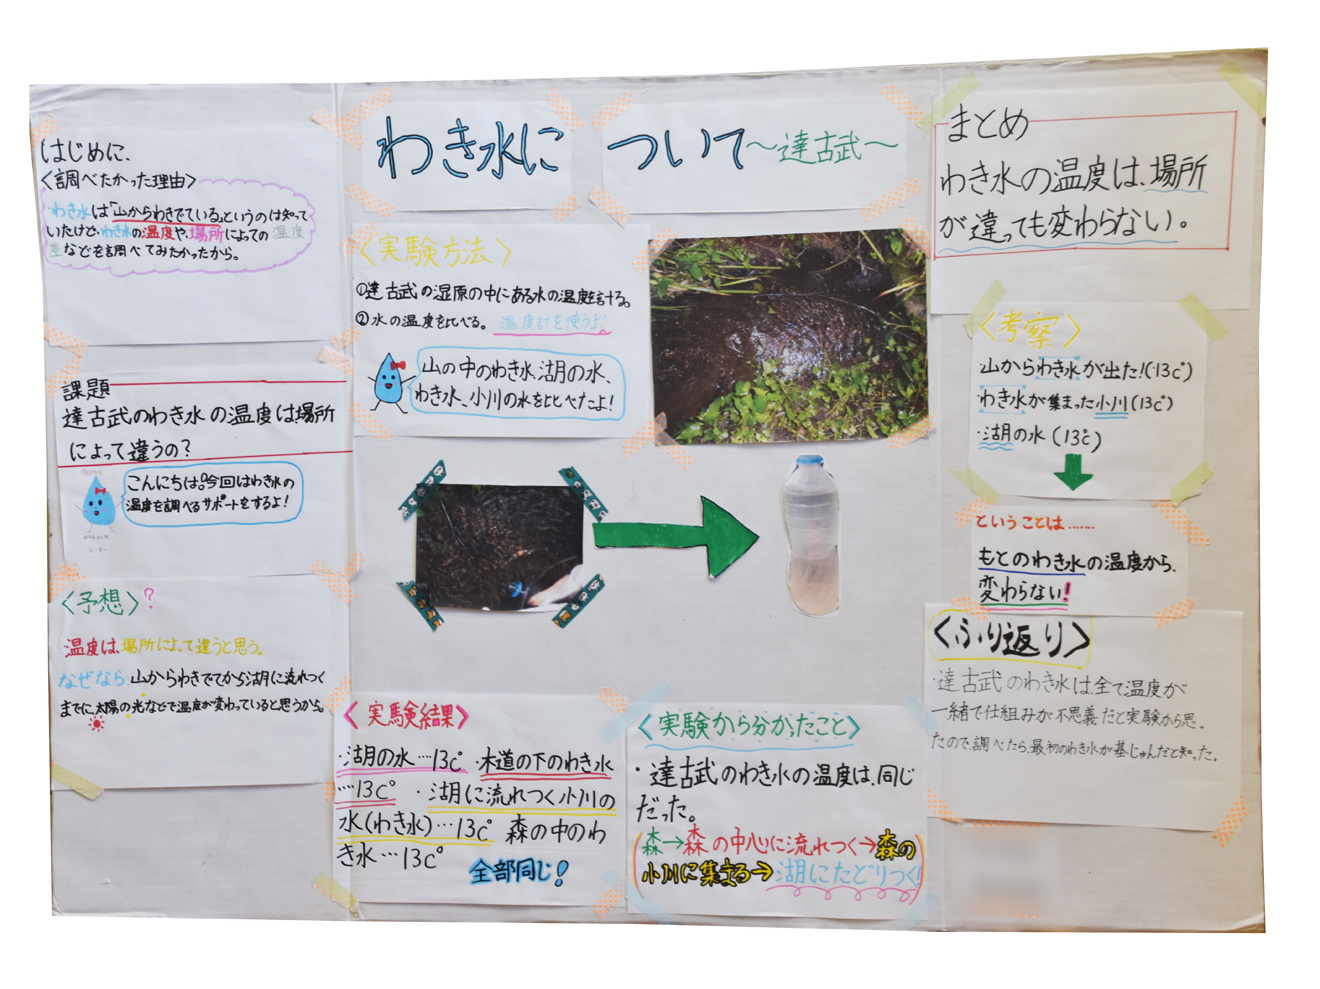 わき水に ついて～達古武～
はじめに、
〈調べたかった理由〉
・わき水は「山からわきでている。」というのは知って
いたけど、わき水の温度や、場所によっての温度
差などを調べてみたかったから。
課題
達古武のわき水の温度は場所
によって違うの？
こんにちは。今回はわき水の
温度を調べるサポートをするよ！
〈予想〉？
温度は、場所によって違うと思う。
なぜなら 山からわきでてから湖に流れつく
までに、太陽の光などで温度が変わっていると思うから。
〈実験方法〉
①達古武の湿原の中にある水の温度を計る。
②水の温度を比べる。 温度計を使うよ！
山の中のわき水、湖の水、
わき水、小川の水を比べたよ！
〈実験結果〉
・湖の水…13c° ・木道の下のわき水
…13c° ・湖に流れつく小川の
水(わき水)…13c° 森の中のわ
き水…13c°
全部同じ！
〈実験から分かったこと〉
・達古武のわき水の温度は、同じ
だった。
(森→森の中心に流れつく→森の
小川に集まる→湖にたどりつく!)
まとめ
わき水の温度は、場所
が違っても変わらない。
〈考察〉
山からわき水が出た!(13c°)
・わき水が集まった小川(13c°)
・湖の水(13c°)
ということは……
もとのわき水の温度から、
変わらない！
〈ふり返り〉
・達古武のわき水は全て温度が
一緒で仕組みが不思議だと実験から思っ
たので、調べたら、最初のわき水が基じゅんだと知った。